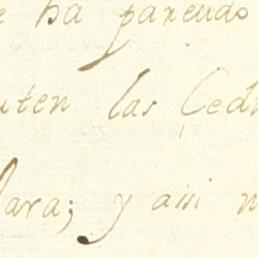 e ha parecido
uten las Ced
lara; y assi n